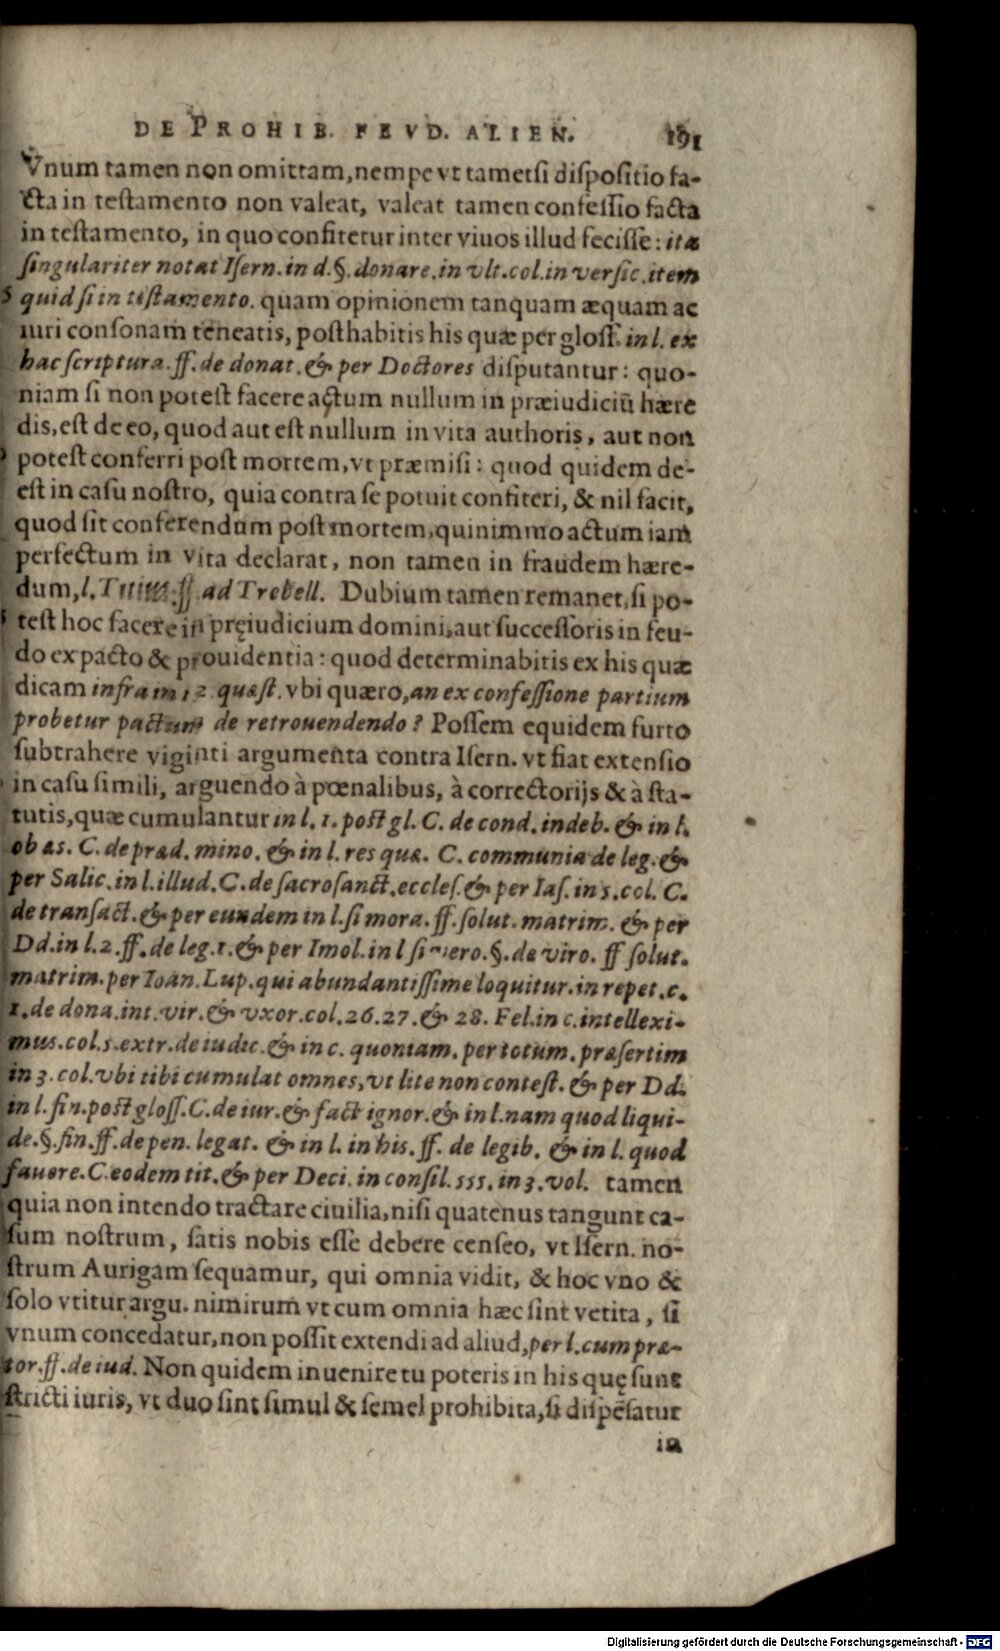 DE PROHIB. FEVD. ALIEN. 191
Vnum tamen non omittam, nempe vt tametsi dispositio fa-
cta in testamento non valeat, valeat tamen confessio facta
in testamento, in quo confitetur inter viuos illud fecisse: ita
singulariter notat Isern. in d. §. donare. in vlt. col. in versic. item
quid si in testamento. quam opinionem tanquam æquam ac
iuri consonam teneatis, posthabitis his quæ per gloss. in l. ex
hac scriptura. ff. de donat. & per Doctores disputantur: quo-
niam si non potest facere actum nullum in præiudiciũ hære
dis, est de eo, quod aut est nullum in vita authoris, aut non
potest conferri post mortem, vt præmisi: quod quidem de-
est in casu nostro, quia contra se potuit confiteri, & nil facit,
quod sit conferendum post mortem, quinimmo actum iam
perfectum in vita declarat, non tamen in fraudem hære-
dum, l. Titius. ff. ad Trebell. Dubium tamen remanet, si po-
test hoc facere in pręiudicium domini, aut successoris in feu-
do ex pacto & prouidentia: quod determinabitis ex his quæ
dicam infra in 12 quæst. vbi quæro, an ex confessione partium
probetur pactum de retrouendendo? Possem equidem furto
subtrahere viginti argumenta contra Isern. vt fiat extensio
in casu simili, arguendo à pœnalibus, à correctorijs & à sta-
tutis, quæ cumulantur in l. 1. post gl. C. de cond. indeb. & in l.
ob æs. C. de præd. mino. & in l. res quæ. C. communia de leg. &
per Salic. in l. illud. C. de sacrosanct. eccles. & per Ias. in 5. col. C.
de transact. & per eundem in l. si mora. ff. solut. matrim. & per
Dd. in l. 2. ff. de leg. 1. & per Imol. in l si vero. §. de viro. ff solut.
matrim. per Ioan. Lup. qui abundantissime loquitur. in repet. c.
1. de dona. int. vir. & vxor. col. 26. 27. & 28. Fel. in c. intellexi-
mus. col. 5. extr. de iudic. & in c. quoniam. per totum. præsertim
in 3. col. vbi tibi cumulat omnes, vt lite non contest. & per Dd.
in l. fin. post gloss. C. de iur. & fact ignor. & in l. nam quod liqui-
de. §. fin. ff. de pen. legat. & in l. in his. ff. de legib. & in l. quod
fauore. C. eodem tit. & per Deci. in consil. 555. in 3. vol. tamen
quia non intendo tractare ciuilia, nisi quatenus tangunt ca-
sum nostrum, satis nobis esse debere censeo, vt Isern. no-
strum Aurigam sequamur, qui omnia vidit, & hoc vno &
solo vtitur argu. nimirum vt cum omnia hæc sint vetita, si
vnum concedatur, non possit extendi ad aliud, per l. cum præ-
tor. ff. de iud. Non quidem inuenire tu poteris in his quę sunt
stricti iuris, vt duo sint simul & semel prohibita, si dispẽsatur
in
Digitalisierung gefördert durch die Deutsche Forschungsgemeinschaft - DFG